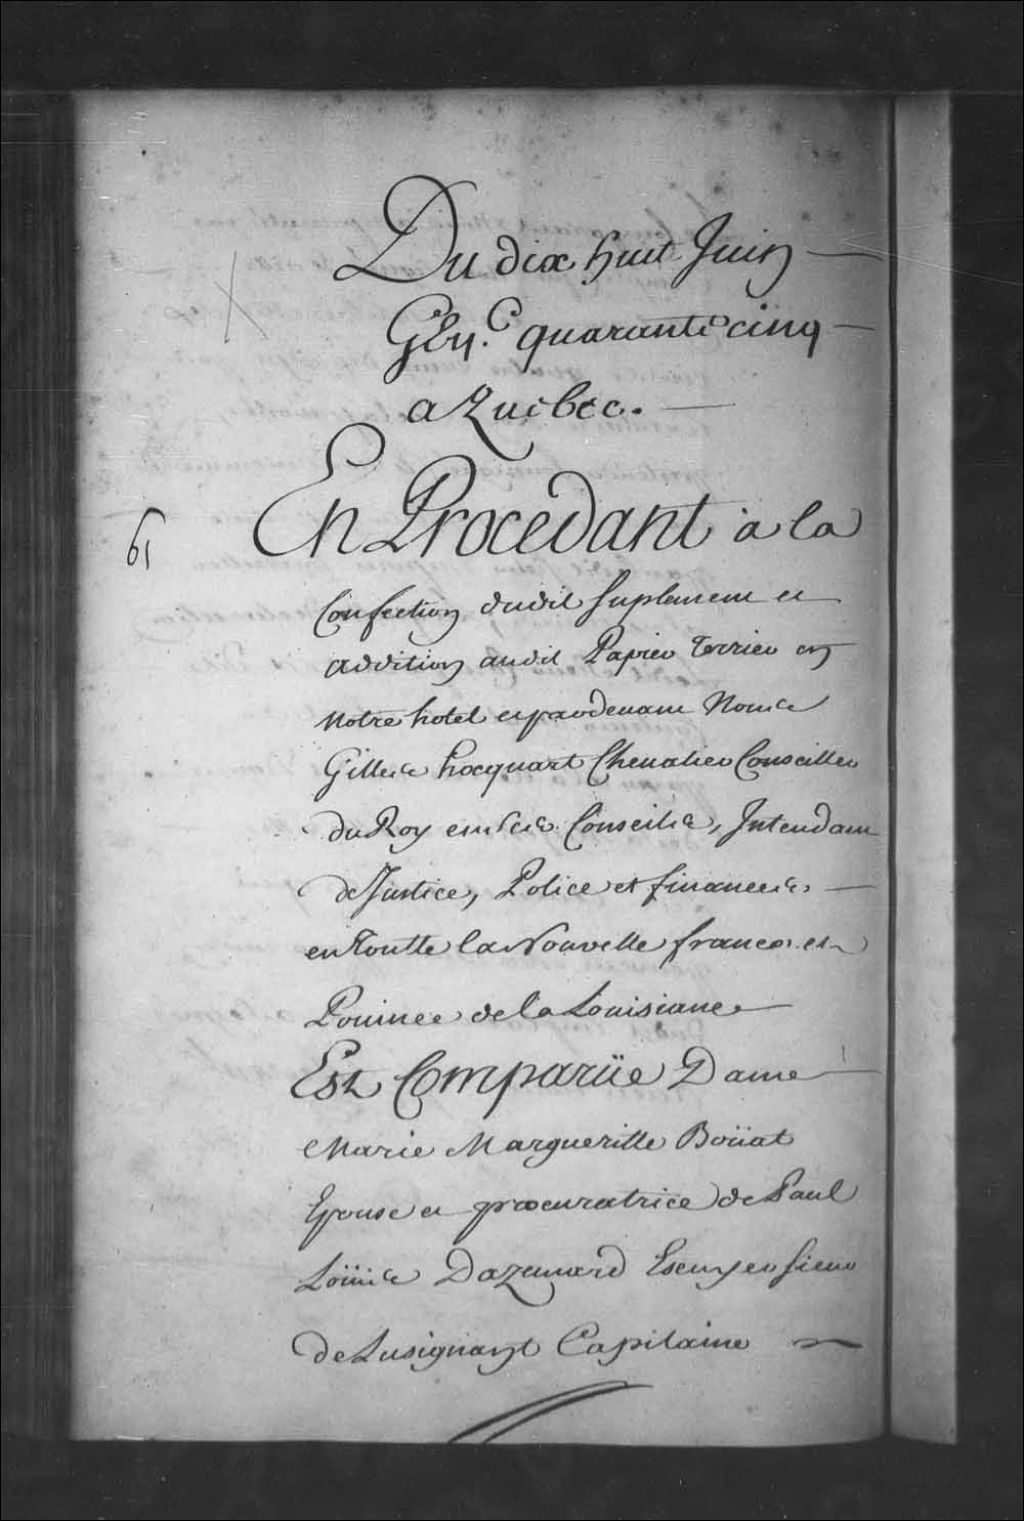 Du dix huit Juin
Gbij.C quarante cinq
a Quebec.
En Procedant à la
61
Confection dudit suplement et
addition audit Papier terrier en
notre hotel et pardevant Nous
Gilles hocquart Chevalier Conseiller
du Roy en ses Conseils, Intendant
de Justice, Police et finances
en toutte la Nouvelle france et
Pouince de la Louisianne
Est Comparüe Dame
Marie Margueritte Boüat
Epouse et procuratrice de Paul
Loüis Dazemard Escuyer sieur
de Lusignant Capitaine